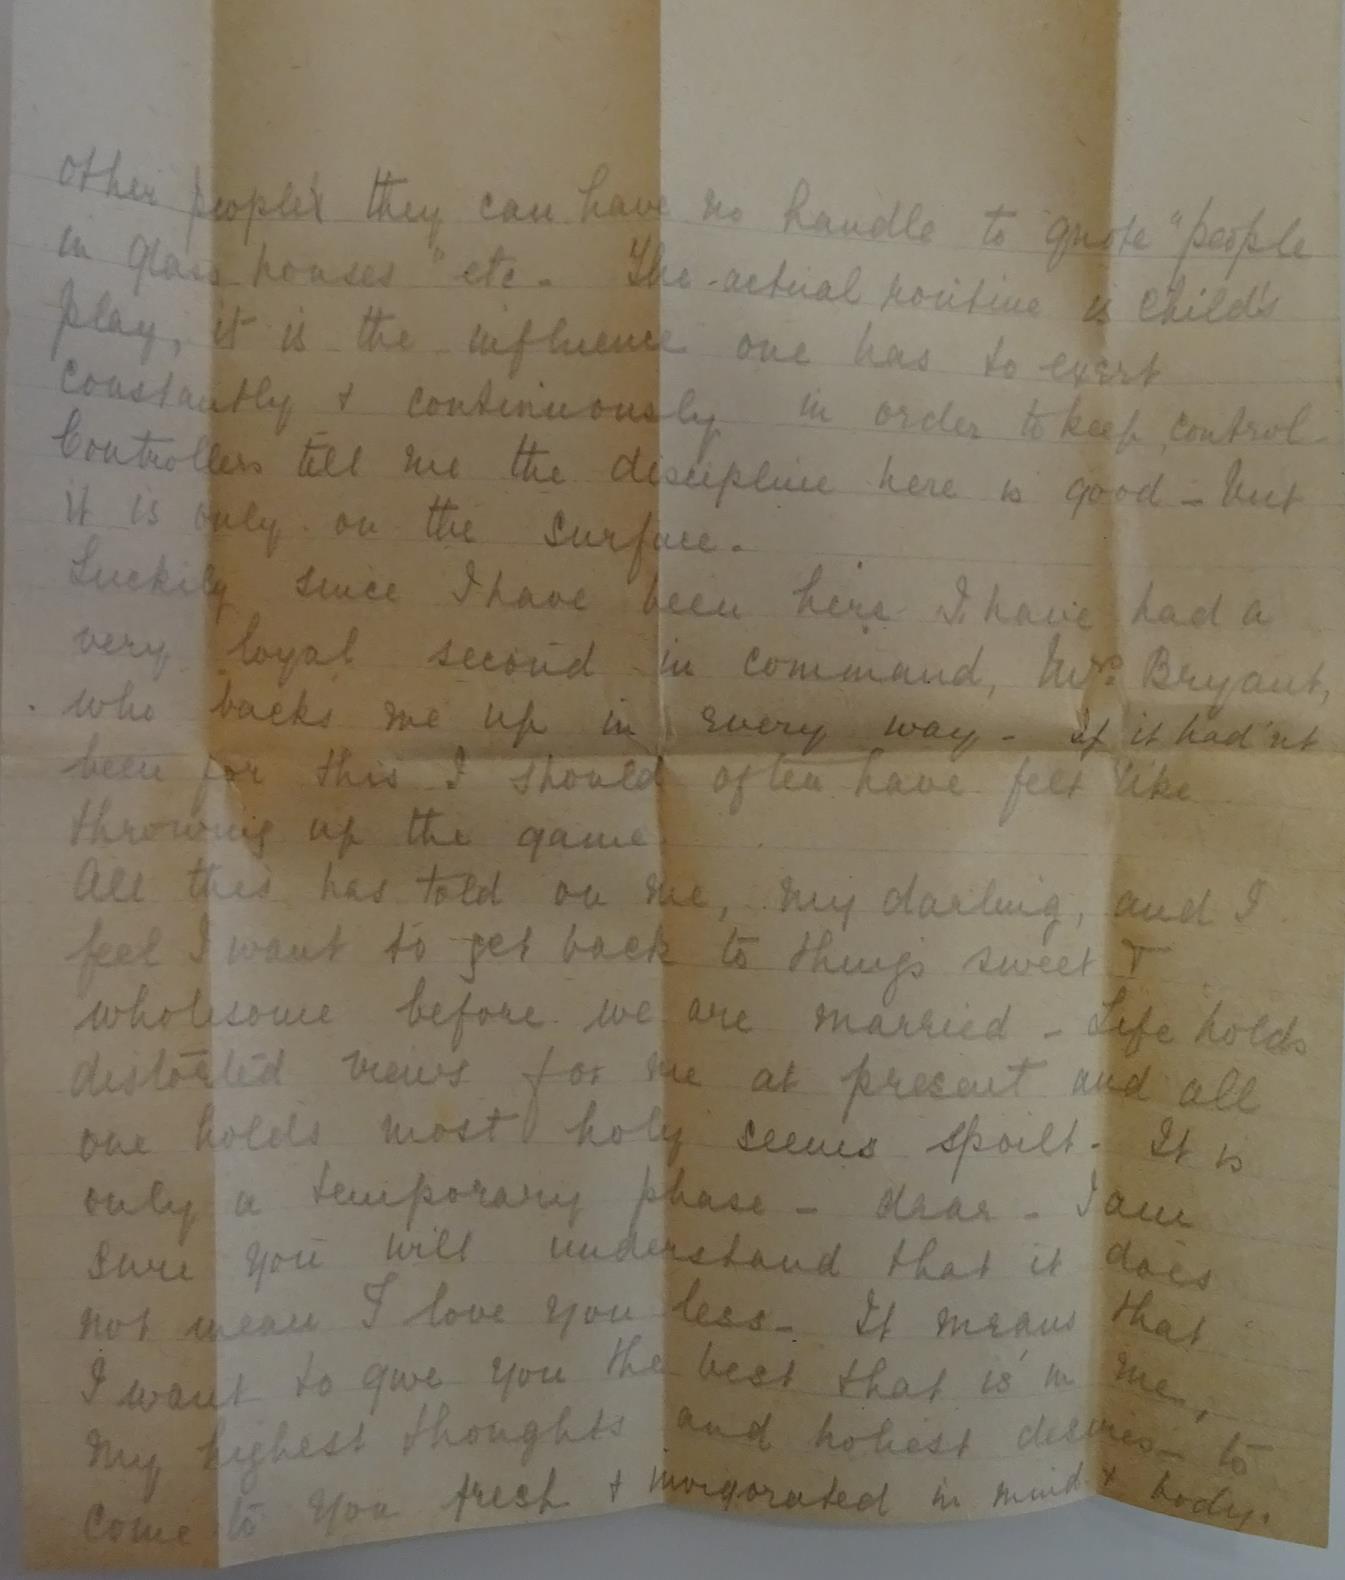 other people's they can have no handle to quote "people
in glass houses" etc. The actual routine is child's
play, it is the influence one has to exert
constantly & continuously in order to keep control
Controllers tell me the discipline here is good - but
it is only on the surface.
Luckily since I have been here I have had a
very loyal second in command, Mrs Bryant,
who backs me up in every way - If it had'nt
been for this I should often have felt like
throwing up the game
All this has told on me, my darling, and I
feel I want to get back to things sweet &
wholesome before we are married - Life holds
distorted views for me at present and all
one holds most holy seems spoilt - It is
only a temporary phase - dear - I am
sure you will understand that it does
not mean I love you less - It means that
I want to give you the best that is in me,
my highest thoughts and holiest desires - to
come to you fresh & invigorated in mind & body.